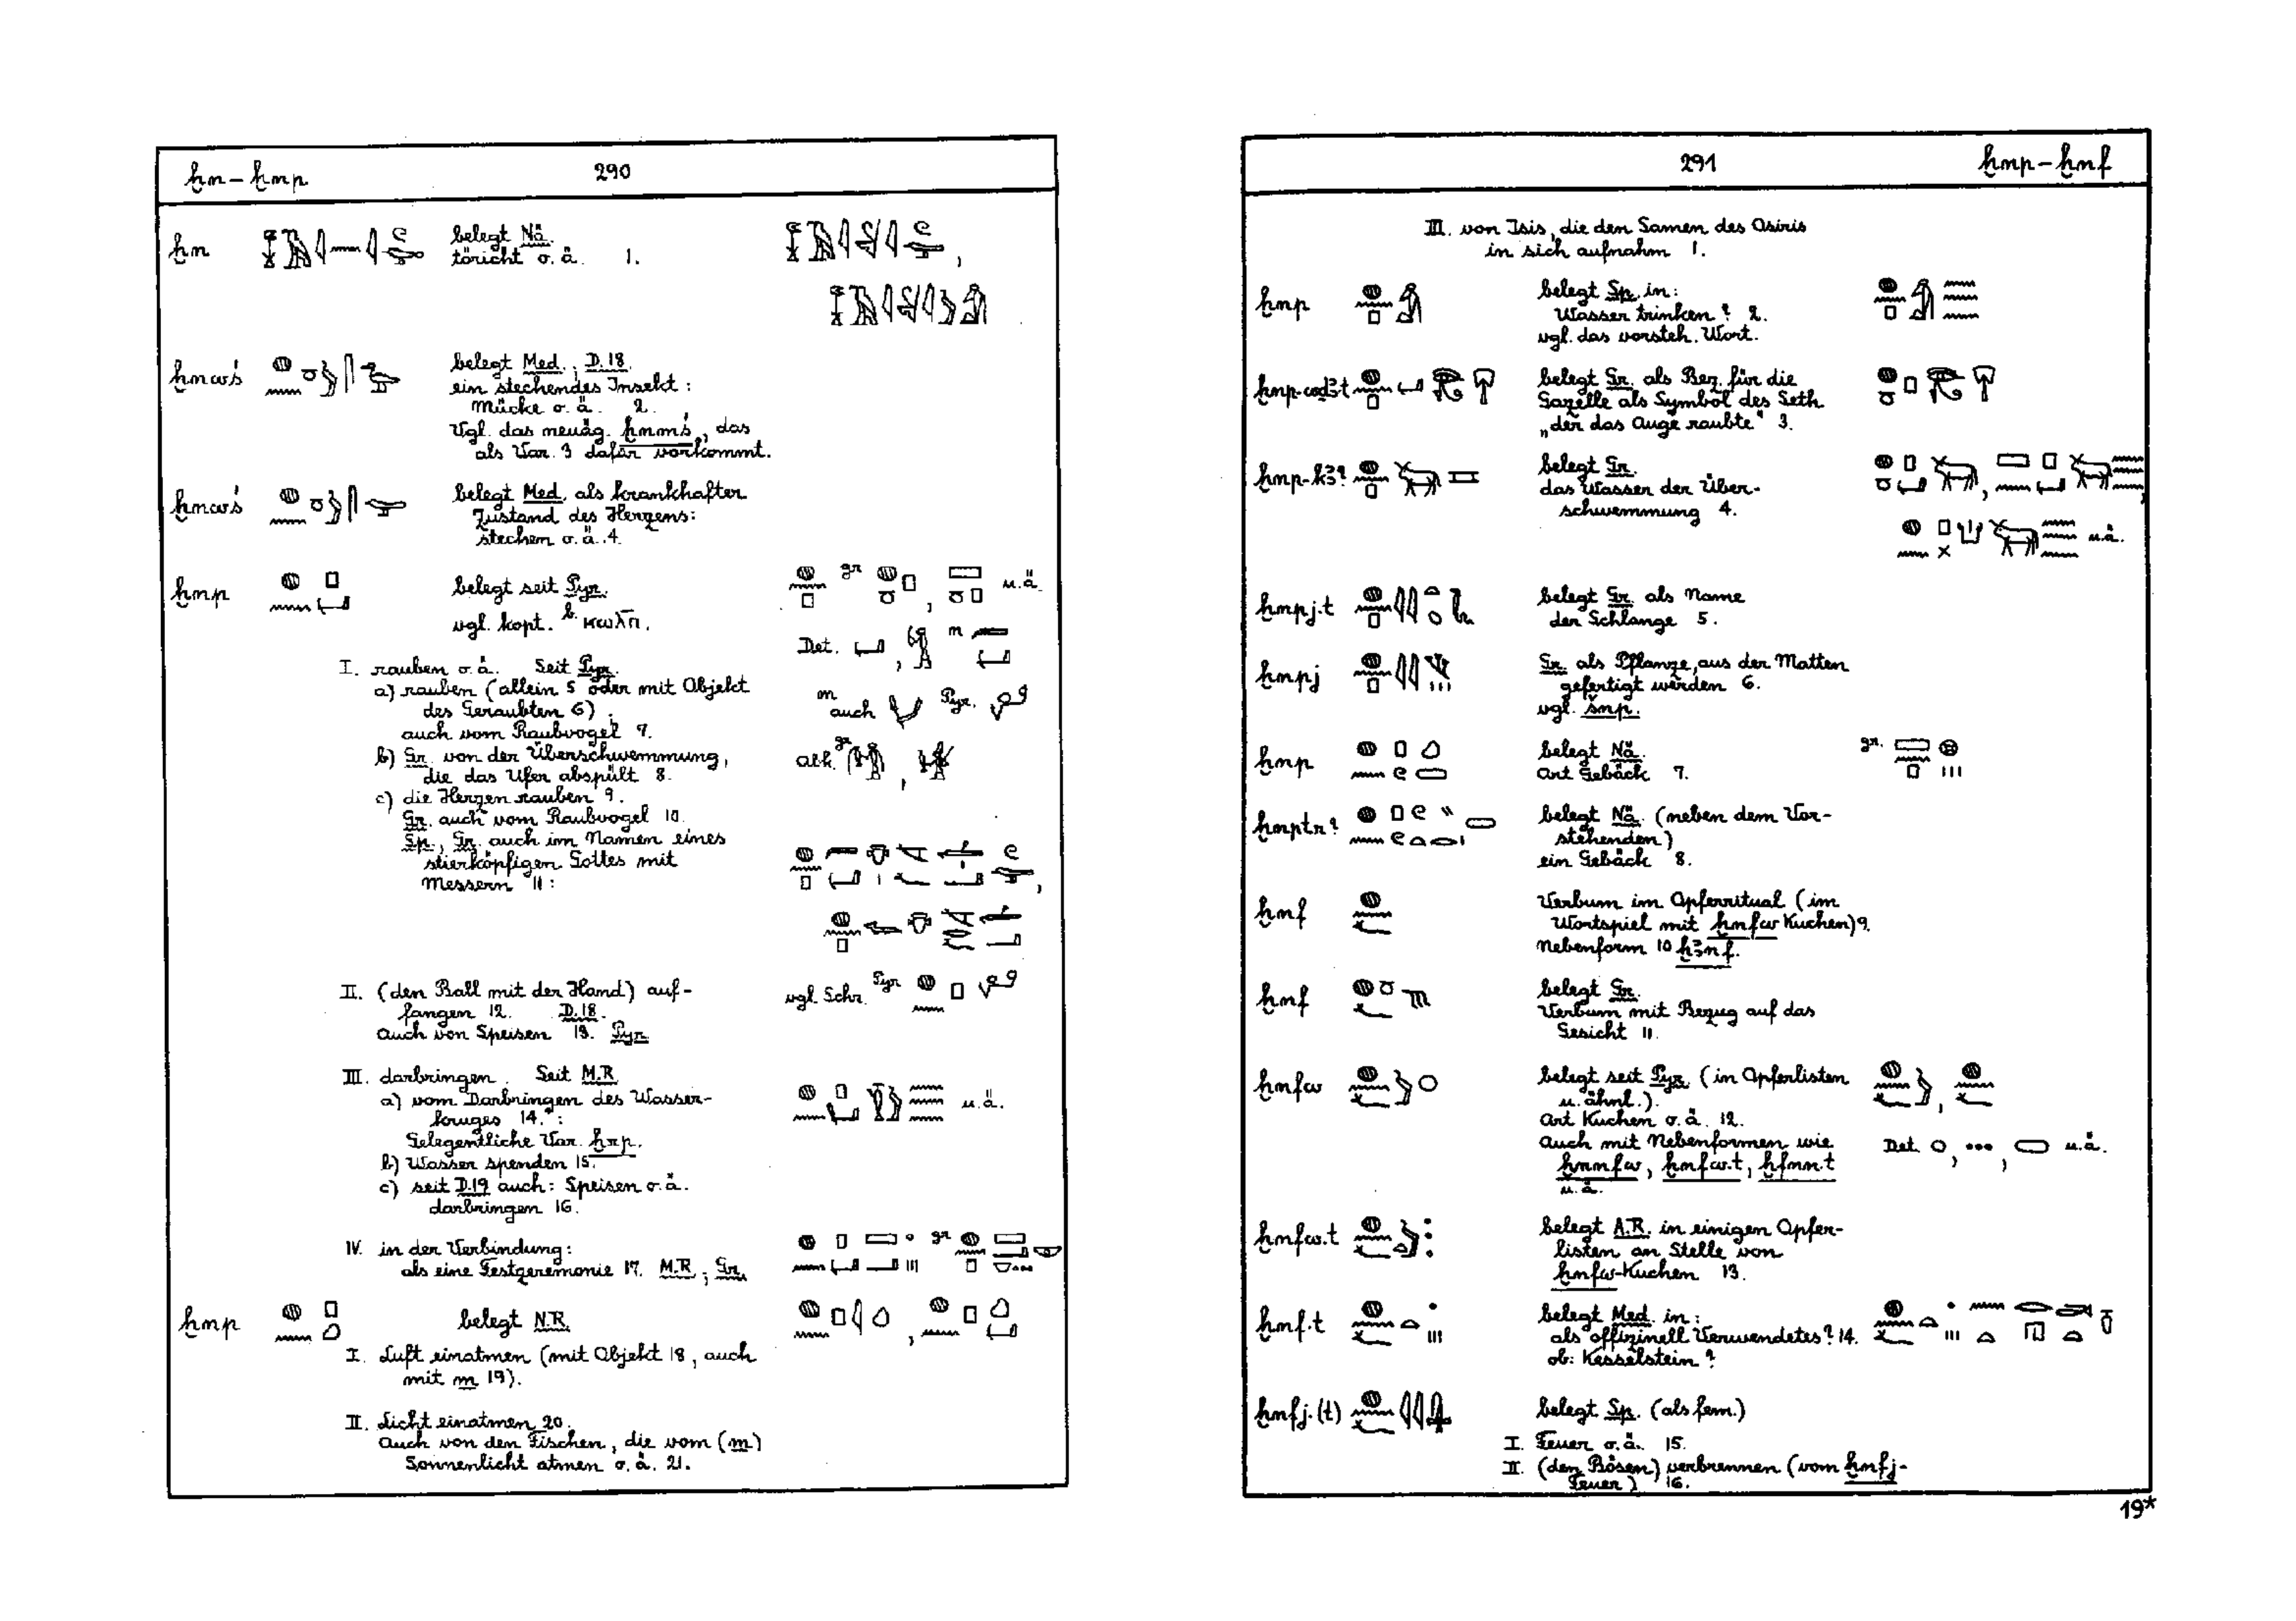 ḫn – ḫnp 290
ḫn belegt Nä.
töricht o. ä. 1.
ḫnws belegt Med.; D.18.
ein stechendes Insekt:
Mücke o. ä. 2.
Vgl. das neuäg. ḫnmś, das
als Var. 3 dafür vorkommt.
ḫnwś belegt Med. als krankhafter
Zustand des Herzens:
stechen o. ä. 4.
ḫnp belegt seit Pyr. u. ä.
vgl. kopt. b. ⲕⲱⲗⲡ.
Det.
I. rauben o. ä. Seit Pyr.
a) rauben (allein 5 oder mit Objekt
des Geraubten 6);
auch vom Raubvogel 7.
auch Pyr.
b) Gr. von der Überschwemmung,
die das Ufer abspült 8.
c) die Herzen rauben 9.
Gr. auch vom Raubvogel 10.
Sp., Gr. auch im Namen eines
stierköpfigen Gottes mit
Messern 11:
II. (den Ball mit der Hand) auf-
fangen 12. D.18.
auch von Speisen 13. Pyr.
vgl. Schr. Pyr
III. darbringen. Seit M.R.
a) vom Darbringen des Wasser-
kruges 14.: u. ä.
Gelegentliche Var. ḫrp.
b) Wasser spenden 15.
c) seit D.19 auch: Speisen o. ä.
darbringen 16.
IV. in der Verbindung: gr
als eine Festzeremonie 17. M.R.; Gr.
ḫnp belegt N.R.
I. Luft einatmen (mit Objekt 18, auch
mit m 19).
II. Licht einatmen 20.
Auch von den Fischen, die vom (m)
Sonnenlicht atmen o. ä. 21.
291 ḫnp – ḫnf
III. von Isis, die den Samen des Osiris
in sich aufnahm 1.
ḫnp belegt Sp. in:
Wasser trinken? 2.
vgl. das vorsteh. Wort.
ḫnp-wḏꜣt belegt Gr. als Bez. für die
Gazelle als Symbol des Seth
„der das Auge raubte“ 3.
ḫnp-kꜣ? belegt Gr.
das Wasser der Über-
schwemmung 4. u. ä.
ḫnpj.t belegt Gr. als Name
der Schlange 5.
ḫnpj Gr. als Pflanze, aus der Matten
gefertigt werden 6.
vgl. šnp.
ḫnp belegt Nä. gr.
Art Gebäck 7.
ḫnptr? belegt Nä. (neben dem Vor-
stehenden)
ein Gebäck 8.
ḫnf Verbum im Opferritual (im
Wortspiel mit ḫnfw Kuchen) 9.
Nebenform 10 ḫꜣnf.
ḫnf belegt Gr.
Verbum mit Bezug auf das
Gesicht 11.
ḫnfw belegt seit Pyr. (in Opferlisten
u. ähnl.).
Art Kuchen o. ä. 12.
Auch mit Nebenformen wie Det. u. ä.
ḫnnfw, ḫnfw.t, ḫfnn.t
u. ä.
ḫnfw.t belegt A.R. in einigen Opfer-
listen an Stelle von
ḫnfw-Kuchen 13.
ḫnf.t belegt Med. in:
als offizinell Verwendetes? 14.
ob: Kesselstein?
ḫnfj.(t) belegt Sp. (als fem.)
I. Feuer o. ä. 15.
II. (den Bösen) verbrennen (vom ḫnfj-
Feuer) 16.
19*